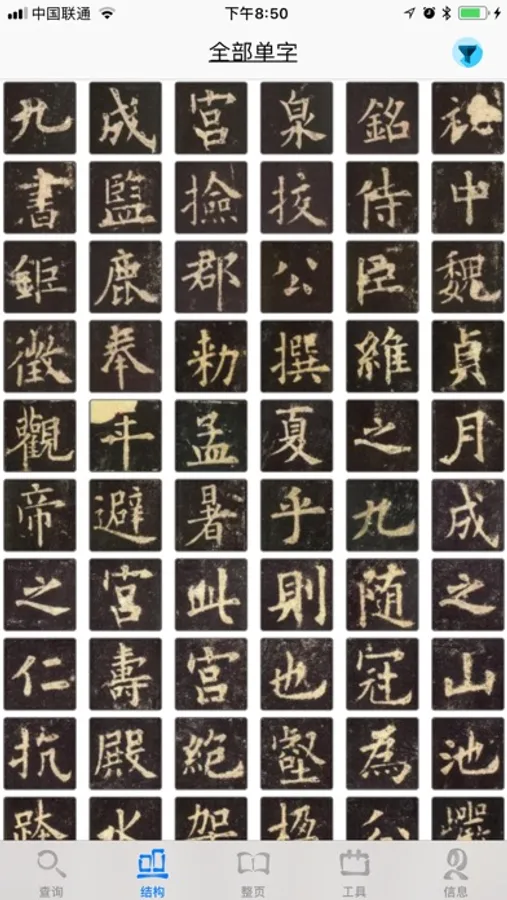 中国联通 下午8:50
全部单字
九成宮泉銘祕
書監撿挍侍中
鉅鹿郡公臣魏
徵奉勑撰維貞
觀年孟夏之月
帝避暑乎九成
之宮此則随之
仁壽宮也冠山
抗殿絕壑為池
跨水架楹分巖
查询 结构 整页 工具 信息